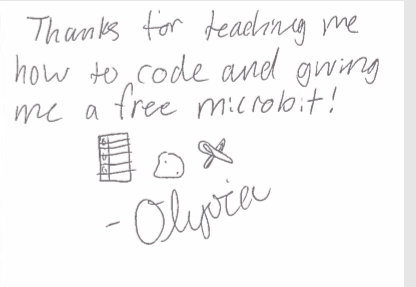 Thanks for teaching me
how to code and giving
me a free microbit!
- Olyvia